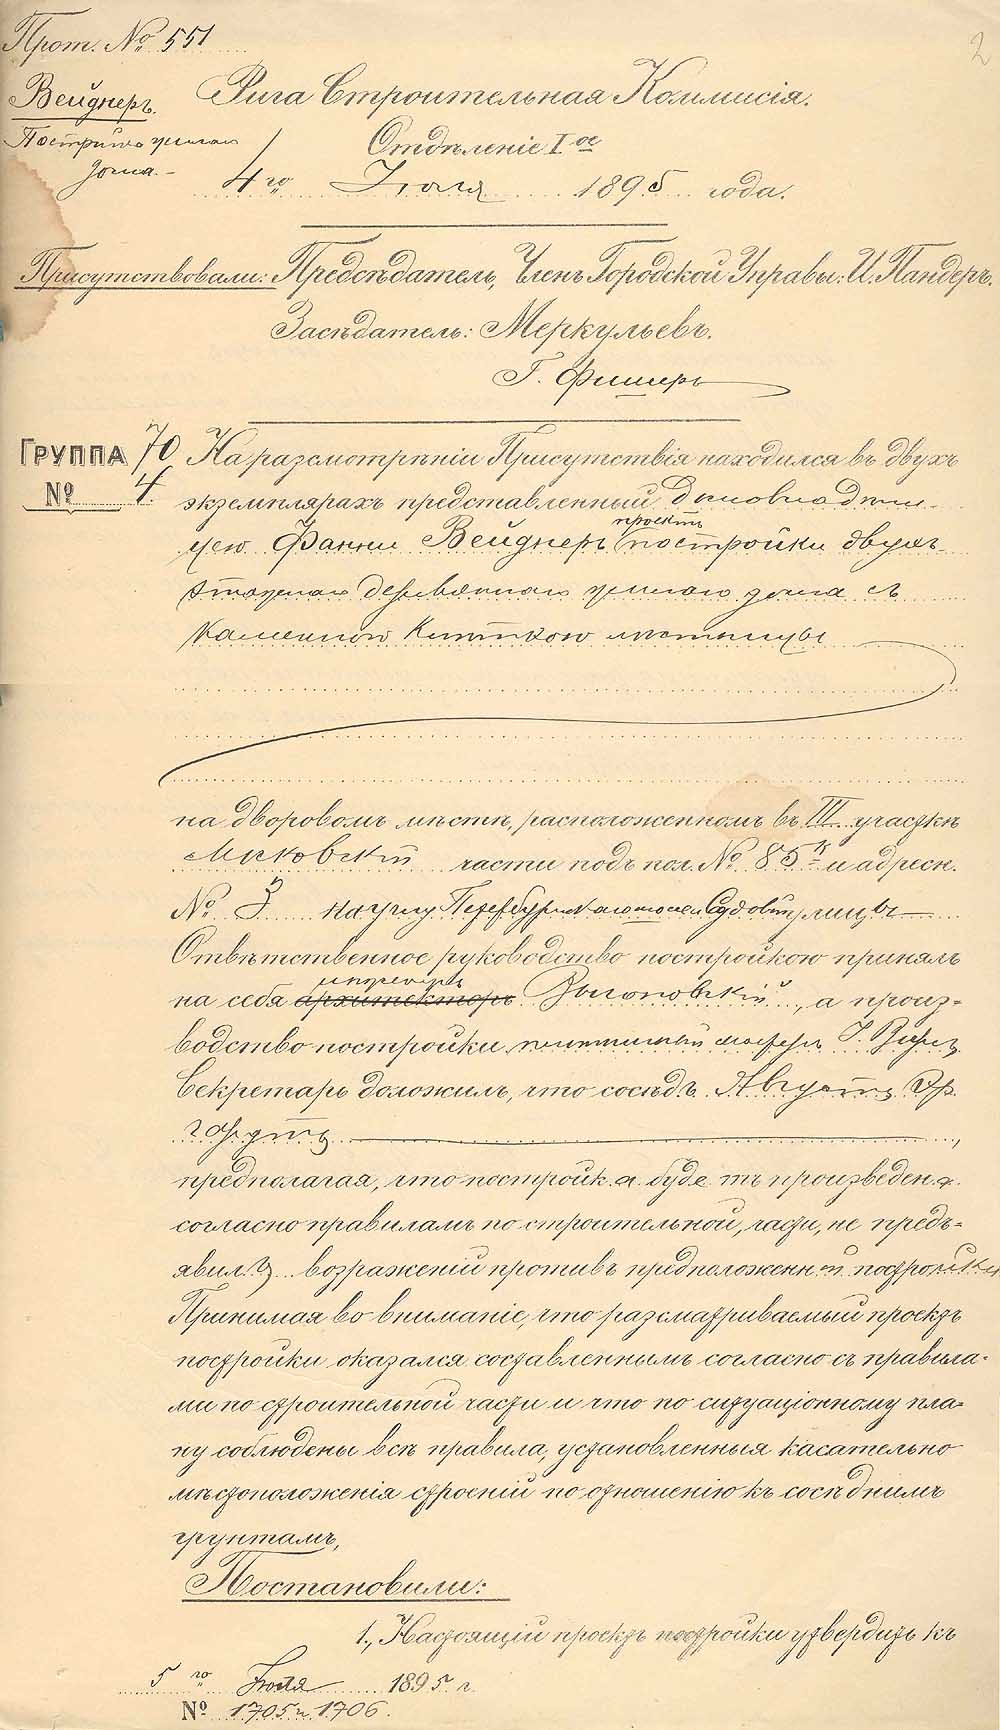 Прот. № 551
2
Вейднеръ.
Рига Строительная Коммисія.
Постройка жилаго
дома.
Отдѣленіе I ое
4 го Іюля 1895 года.
Присутствовали: Предсѣдатель, Членъ Городской Управы: И. Пандеръ.
Засѣдатель: Меркульевъ.
Г. Фишеръ
Группа 70
№ 4.
На разсмотрѣніи Присутствія находился въ двухъ
экземплярахъ представленный домовладѣли-
цею Фанни Вейднеръ проектъ постройки двухъ-
этажнаго деревяннаго жилаго дома съ
каменною клѣткою лѣстницы
на дворовомъ мѣстѣ, расположенномъ въ III участкѣ
Московской части подъ пол. № 85 и адресн.
№ 3 на углу Петербургской и Садовой улицы
Отвѣтственное руководство постройкою принялъ
на себя архитекторъ инженеръ, а произ-
водство постройки плотничный мастеръ
Секретарь доложилъ, что сосѣдъ Августъ Эр
гардтъ
предполагая, что постройка будетъ произведена
согласно правиламъ по строительной части, не предъ-
явилъ возраженій противъ предположенной постройки
Принимая во вниманіе, что разсматриваемый проектъ
постройки оказался составленнымъ согласно съ правила-
ми по строительной части и что по ситуаціонному пла-
ну соблюдены всѣ правила, установленныя касательно
мѣстоположенія строеній по отношенію къ сосѣднимъ
грунтамъ,
Постановили:
1., Настоящій проектъ постройки утвердить къ
5 го Іюля 1895 г.
№ 1705 и 1706.